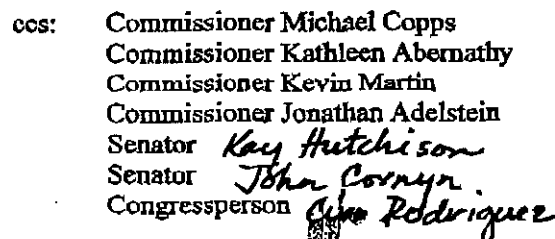 ccs: Commissioner Michael Copps
Commissioner Kathleen Abernathy
Commissioner Kevin Martin
Commissioner Jonathan Adelstein
Senator Kay Hutchison
Senator John Cornyn
Congressperson Rodriguez